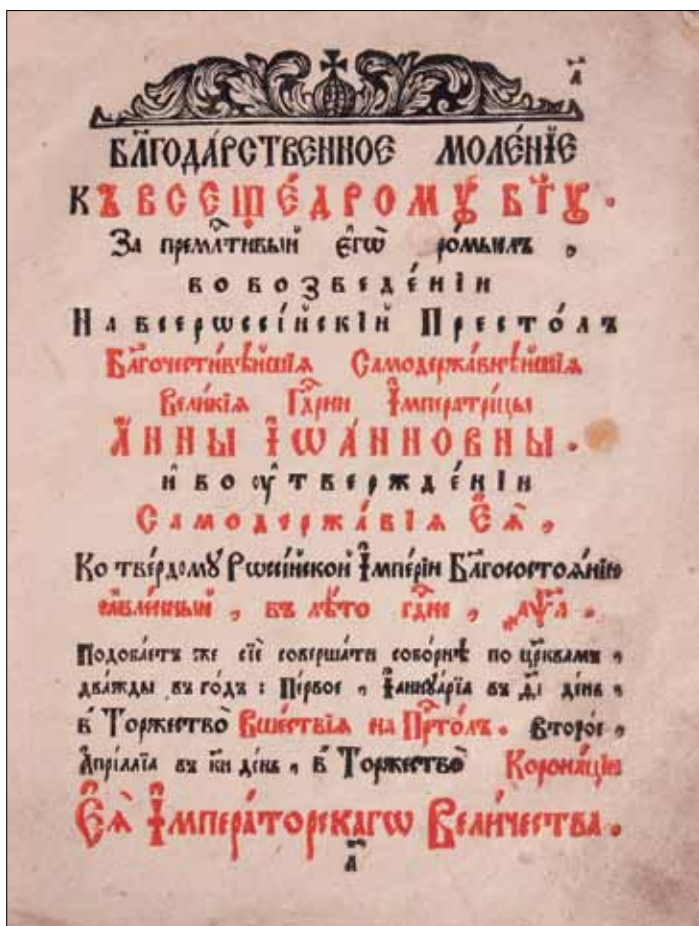 а҃
БЛ҃ГОДА́РСТВЕННОЕ МОЛЕ́НЇЕ
КЪ ВСЕЩЕ́ДРОМУ БГ҃У.
За премлⷭ҇тивый є҆гѡ̀ про́мыслъ,
во возведе́нїи
На всерѡссі́йскїй Престо́лъ
Бл҃гочести́вѣйшїѧ Самодержа́внѣйшїѧ
Вели́кїѧ Гдⷭ҇рни І҆мператри́цы
А҆́ННЫ І҆ѠА́ННОВНЫ.
и҆ во ᲂу҆твержде́нїи
Самодержа́вїѧ Є҆Ѧ̀,
Ко тве́рдому Рѡссі́йской І҆мпе́рїи Бл҃госостоѧ́нїю
ꙗ҆вле́нный, въ лѣ́то гдⷭ҇не, ҂аѱ҃л.
Подоба́етъ же сїѐ соверша́ти собо́рнѣ по цр҃квамъ,
два́жды въ го́дъ: Пе́рвое, І҆аннꙋа́рїа въ де́нь,
въ Торжество̀ Вше́ствїѧ на Прⷭ҇то́лъ. Второ́е,
А҆прі́ллїа въ к҃и де́нь, въ Торжество̀ Корона́цїи
Є҆Ѧ̀ І҆мпера́торскагѡ Вели́чества.
а҃